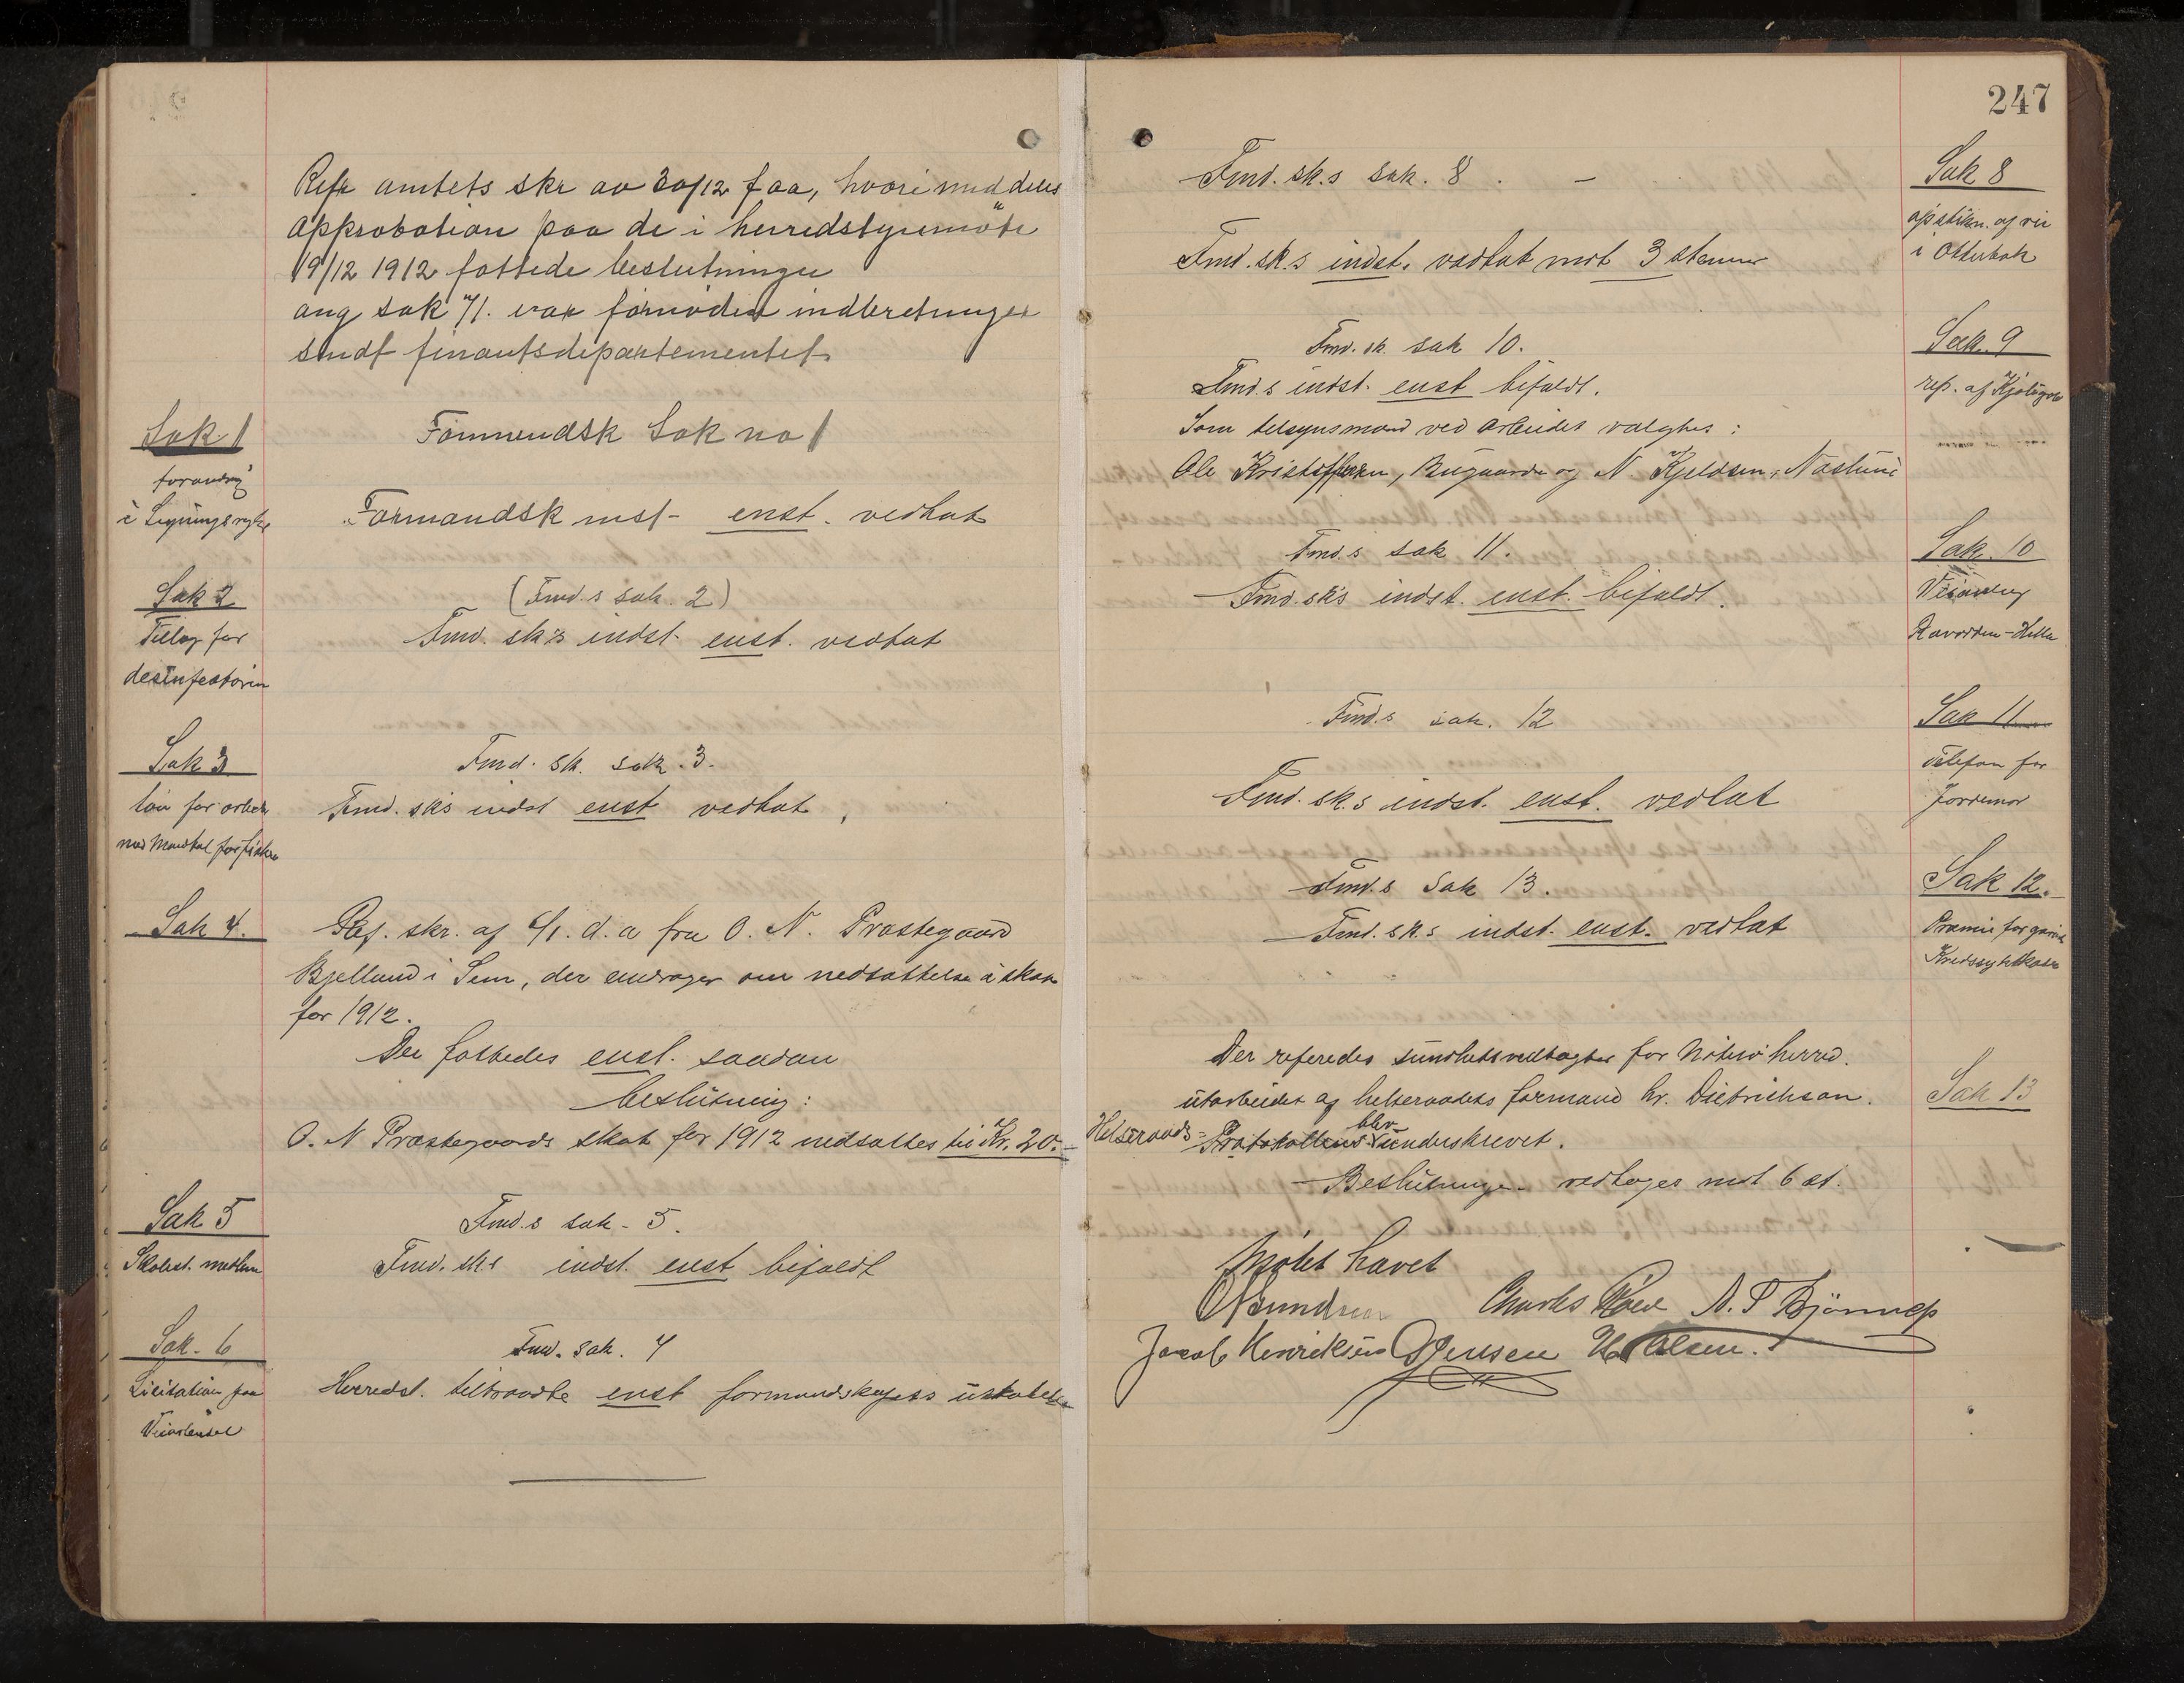 Refr amtets skr av 30/12 f aa, hvori meddeles
approbation paa de i herredstyremöte
19/12 1912 fattede beslutninger
ang sak 7/1. var fornöden indberetninger
sendt finantsdepartementet
Sak 1
forandring
i Ligningsregler
Formendsk Sak no 1
Formandsk inst- enst. vedtat
Sak 2
Tillæg for
desinfectøren
(Fmd.s sak. 2)
Fmd. sk's indst. enst. vedtat
Sak 3
løn for arbeide
med Mandtal for fiskere
Fmd. sk. sak. 3.
Fmd. sk's indst enst vedtat,
Sak 4.
Ref. skr. af 6/1. d. a fra O. N. Præstegaard
Bjelland i Sem, der andrager om nedsættelse i skat
for 1912.
Der fattedes enst. saadan
beslutning:
O. N Præstegaards skat for 1912 nedsættes til Kr. 20.-
Sak 5
Skolest. medlem
Fmd.s sak. 5.
Fmd. sk.s indst. enst bifaldt
Sak. 6
Licitation paa
Veiarbeidet
Fmd. sak. 4
Herredst. tiltraadte enst formandskapets uttalelse
247
Fmd. sk.s sak. 8. -
Sak 8
opstikn. af vei
i Otterbæk
Fmd. sk.s indst. vedtat mot 3 stemmer
Fmd. sk. sak 10.
Sak. 9
rep. af
Fmd.s indst. enst bifaldt.
Som tilsynsmænd ved arbeidet valgtes:
Ole Kristoffersen, Bugaarden og N Kjeldsen, Næstun
Fmd.s sak 11.
Sak. 10
Veianlæg
Ravodden-Hella
Fmd. sk's indst. enst. bifaldt.
Fmd.s sak. 12
Sak 11
Telefon for
Jordemor
Fmd. sk.s indst. enst. vedtat
Fmd.s Sak 13.
Sak 12.
Præmie for
Kredssykekasse
Fmd. sk.s indst. enst. vedtat
Der referedes sundhetsvedtægter for Nøterø herred.
utarbeidet af helseraadets formand hr. Dietrichson.
Sak 13
Helseraads-Protokollens blev underskrevet.
Beslutningen vedtoges mot 6 st.
Møtet hævet
Charles Røed N. P Björnnes
Jacob Henriksen Jensen H Olsen.